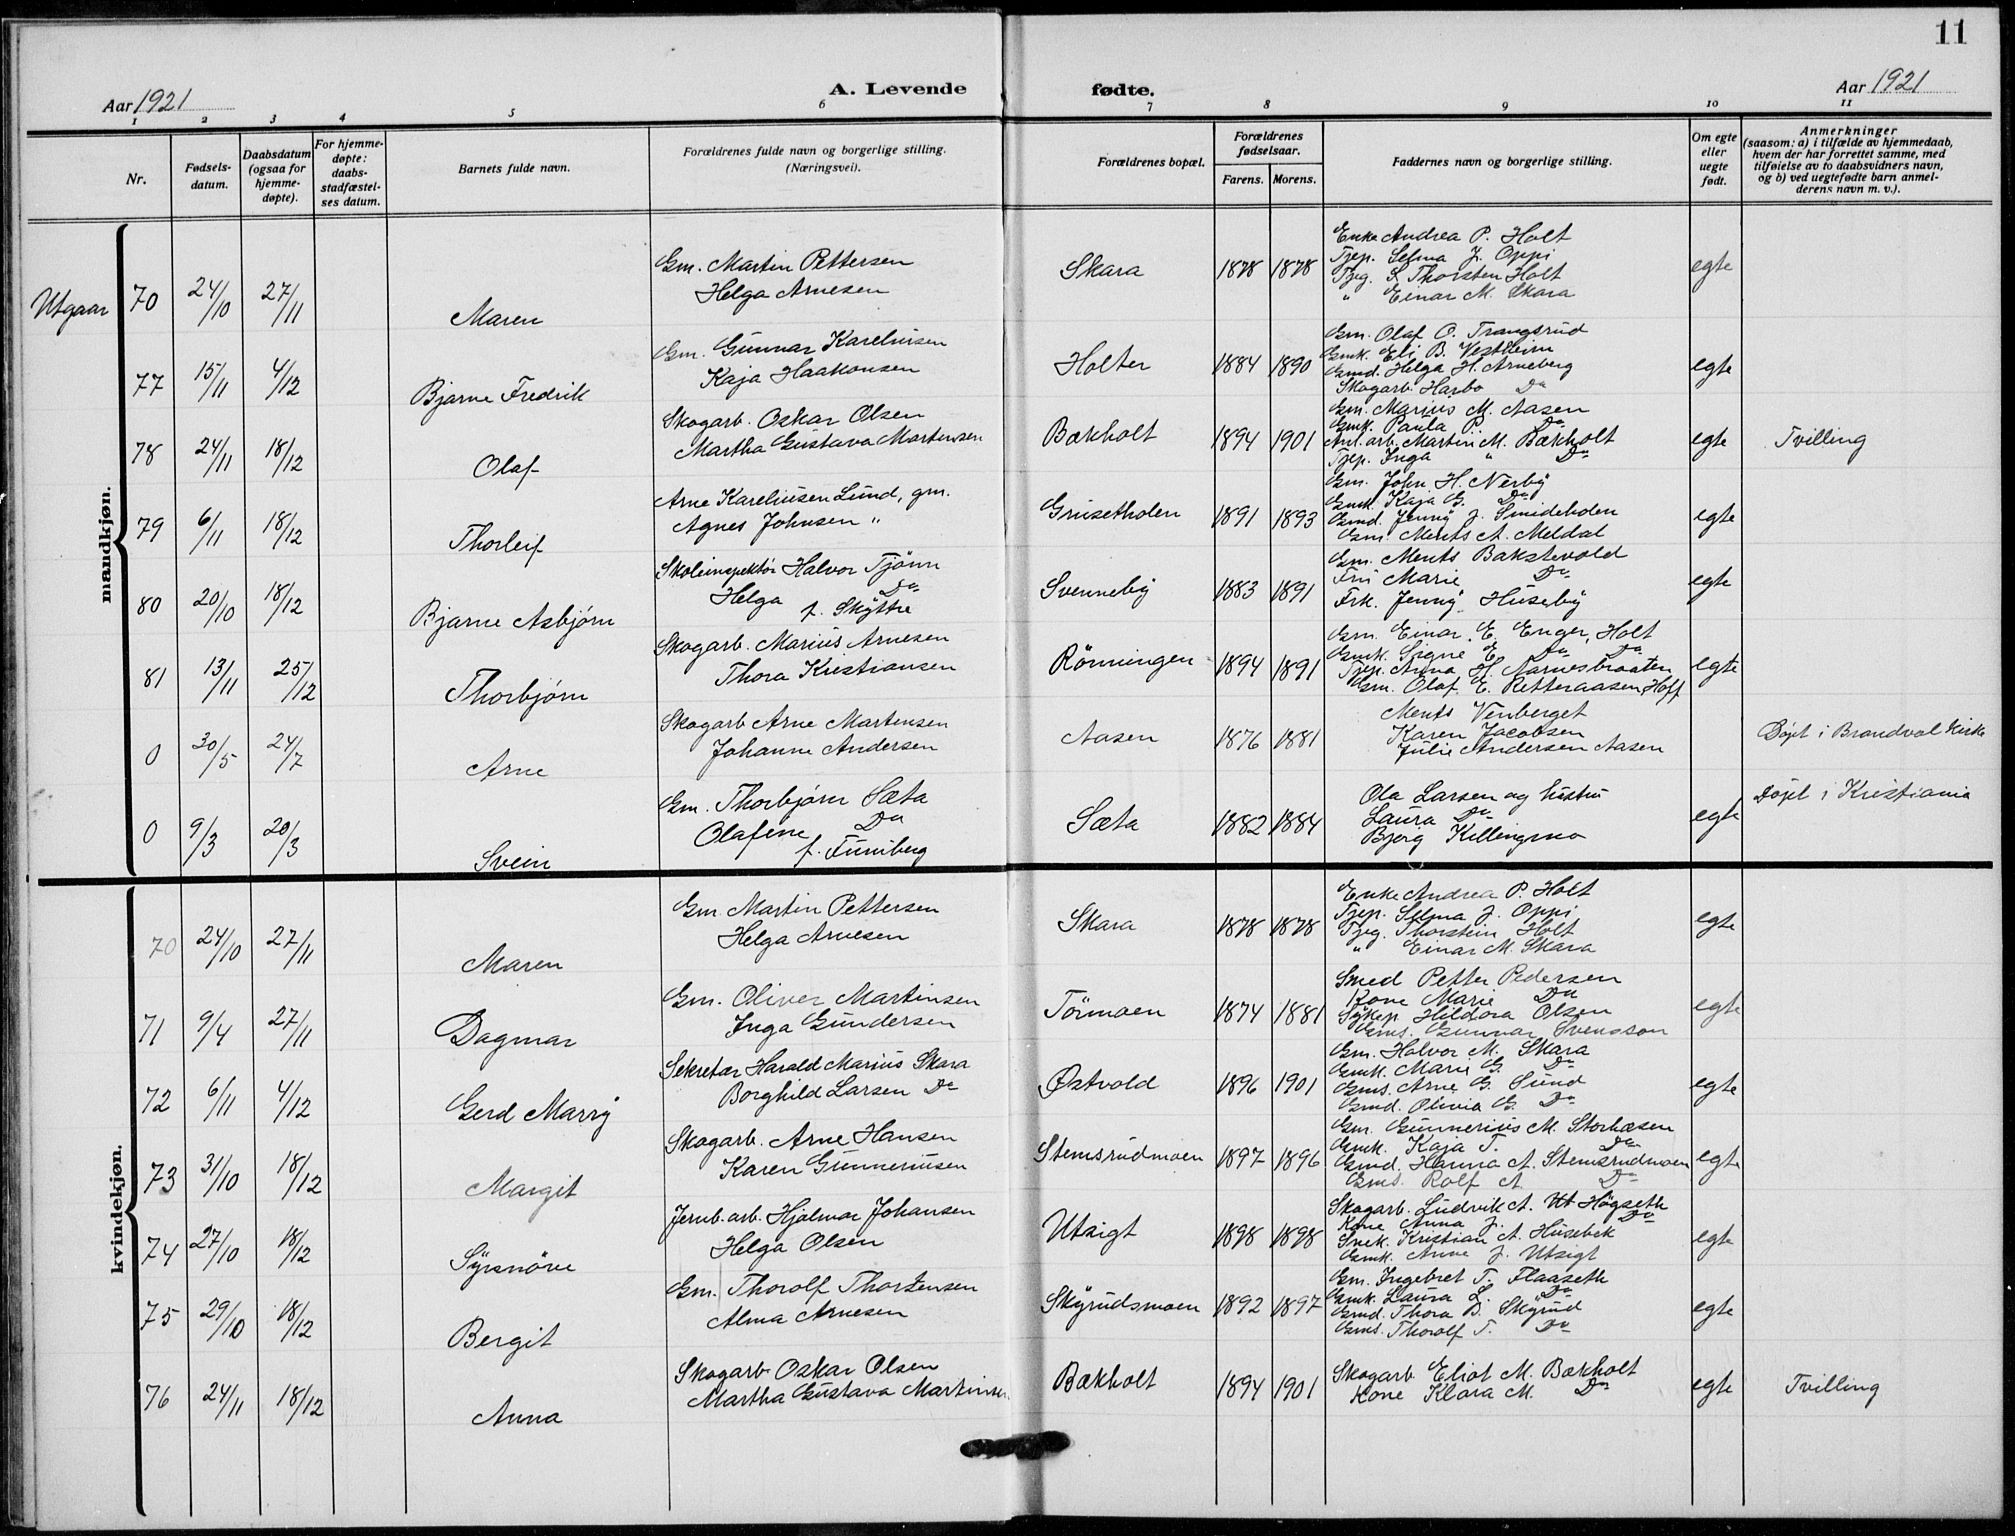 11
Aar 1921
A. Levende fødte.
Aar 1921
1 2 3 4 5 6 7 8 9 10 11
Nr.
Fødsels-
datum.
Daabsdatum
(ogsaa for
hjemme-
døpte).
For hjemme-
døpte:
daabs-
stadfæstel-
ses datum.
Barnets fulde navn.
Forældrenes fulde navn og borgerlige stilling.
(Næringsvei).
Forældrenes bopæl.
Forældrenes
fødselsaar.
Farens. Morens.
Faddernes navn og borgerlige stilling.
Om egte
eller
uegte
født.
Anmerkninger
(saasom: a) i tilfælde av hjemmedaab,
hvem der har forrettet samme, med
tilføielse av to daabsvidners navn,
og b) ved uegtefødte barn anmel-
derens navn m. v.).
mandkjøn.
Utgaar 70 24/10 27/11 Maren
Gm. Martin Pettersen
Helga Arnesen
Skara 1878 1878
Enke Andrea P. Holt
Tjep. Selma J. Oppi
Tjeg. S. Thorsten Holt
" Einar M. Skara
egte
77 15/11 4/12 Bjarne Fredrik
Gm. Gunnar Kareliusen
Kaja Haakonsen
Holter 1884 1890
Gm. Olaf O. Trangsrud
Gmk. Eli B. Vestheim
Gmd. Helga H. Arneberg
Skogarb. Harbo Do
egte
78 24/11 18/12 Olaf
Skogarb. Oskar Olsen
Martha Gustava Martinsen
Bækholt 1894 1901
Gm. Marius M. Aasen
Gmk. Paula P. Do
Anl. arb. Martin M. Bækholt
Tjep. Inga " Do
egte Tvilling
79 6/11 18/12 Thorleif
Arne Kareliusen Lund, gm.
Agnes Johnsen "
Grusetholen 1891 1893
Gm. John H. Nerby
Gmk. Kaja G. Do
Gmd. Jenny J. Smideholen
Gm. Ments A. Meldal
egte
80 20/10 18/12 Bjarne Asbjørn
Skoleinspektör Halvor Tjönn
Helga Do
f. Skyttre
Svenneby 1883 1891
Gm. Ments Bakstevold
Fru Marie Do
Frk. Jenny Huseby
egte
81 13/11 25/12 Thorbjörn
Skogarb. Marius Arnesen
Thora Kristiansen
Rönningen 1894 1891
Gm. Einar E. Enger, Holt
Gmk. Signe E. Do Do
Tjep. Anna H. Aarnesbraaten
Gm. Olaf E. Retteraasen Hoff
egte
0 30/5 24/7 Arne
Skogarb Arne Martensen
Johanne Andersen
Aasen 1876 1881
Ments Venberget
Karen Jacobsen
Julie Andersen Aasen
Döpt i Brandval kirke
0 9/3 20/3 Svein
Gm. Thorbjörn Sæta
Olafine Do
f. Furuberg
Sæta 1882 1884
Ola Larsen og hustru
Laura Do
Bjorg Killingmo
egte Döpt i Kristiania
kvindekjøn.
70 24/10 27/11 Maren
Gm Martin Pettersen
Helga Arnesen
Skara 1878 1878
Enke Andrea P. Holt
Tjep. Selma J. Oppi
Tjeg. Thorstein Holt
" Einar M. Skara
egte
71 9/4 27/11 Dagmar
Gm. Oliver Martinsen
Inga Gundersen
Törmoen 1874 1881
Smed Petter Pedersen
Kone Marie Do
Sykep Hildora Olsen
Gms. Gunnar Svensson
egte
72 6/11 4/12 Gerd Marry
Sekretær Harald Marius Skara
Borghild Larsen Do
Østvold 1896 1901
Gm. Halvor M. Skara
Gmk. Marie G. Do
Gms. Arne G. Sund
Gmd. Olivia G. Do
egte
73 31/10 18/12 Margit
Skogarb. Arne Hansen
Karen Gunneriusen
Stemsrudmoen 1897 1896
Gm. Gunnerius M. Storbæsen
Gmk. Kaja T. Do
Gmd. Hanna A. Stemsrudmoen
Gms. Rolf A. Do
egte
74 27/10 18/12 Synnöve
Jernb. arb. Hjalmar Johansen
Helga Olsen
Utsigt 1898 1898
Skogarb. Ludvik A. Ut Högseth
Kone Anna J. Do
Snek. Kristian A. Husebek
Gmk. Anne J. Utsigt
egte
75 29/10 18/12 Bergit
Gm. Thorolf Thorstensen
Alma Arnesen
Skyrudsmoen 1892 1897
Gm. Ingebret T. Flaaseth
Gmk. Laura L. Do
Gmd. Thora B. Skyrud
Gms. Thorolf T. Do
egte
76 24/11 18/12 Anna
Skogarb Oskar Olsen
Martha Gustava Martinsen
Bækholt 1894 1901
Skogarb Eliot M. Bækholt
Kone Klara M. Do
egte Tvilling